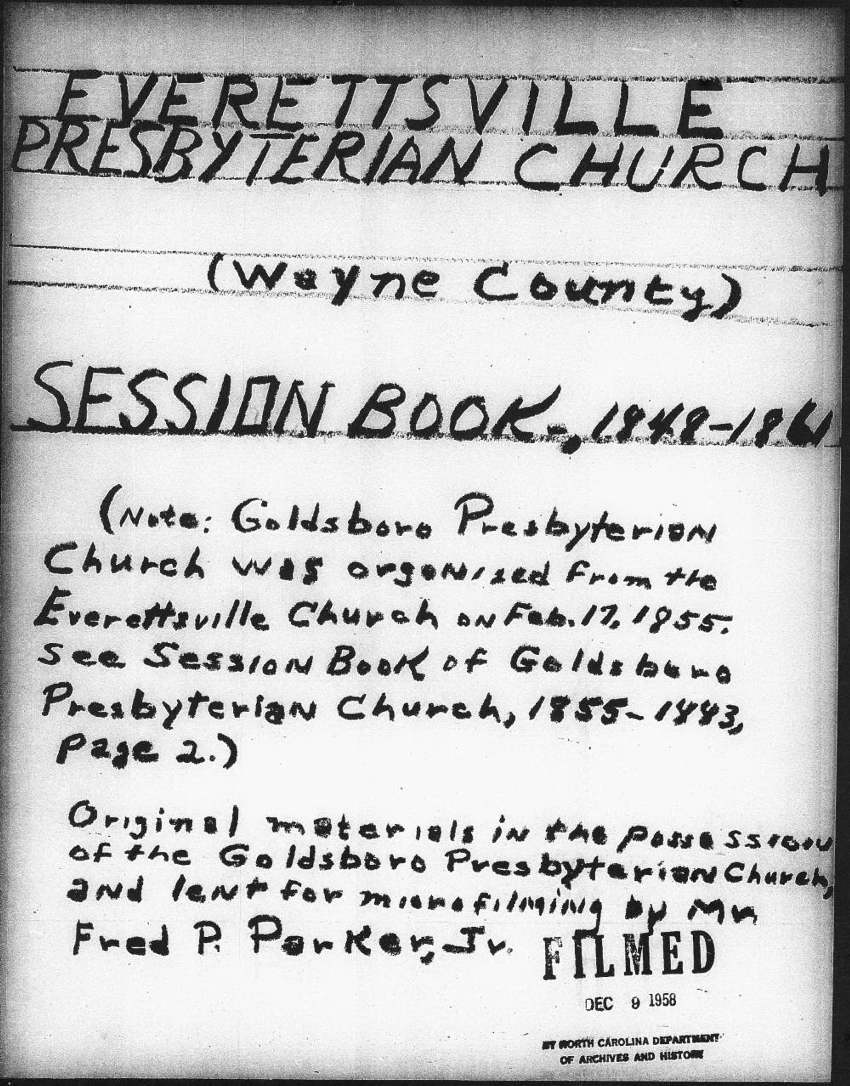 EVERETTSVILLE
PRESBYTERIAN CHURCH
(Wayne County)
SESSION BOOK, 1848-1861
(Note: Goldsboro Presbyterian
Church was organized from the
Everettsville Church on Feb. 17, 1855.
See Session Book of Goldsboro
Presbyterian Church, 1855-1883,
page 2.)
Original materials in the possession
of the Goldsboro Presbyterian Church,
and lent for microfilming by Mr.
Fred P. Parker, Jr.
FILMED
DEC 9 1958
BY NORTH CAROLINA DEPARTMENT
OF ARCHIVES AND HISTORY